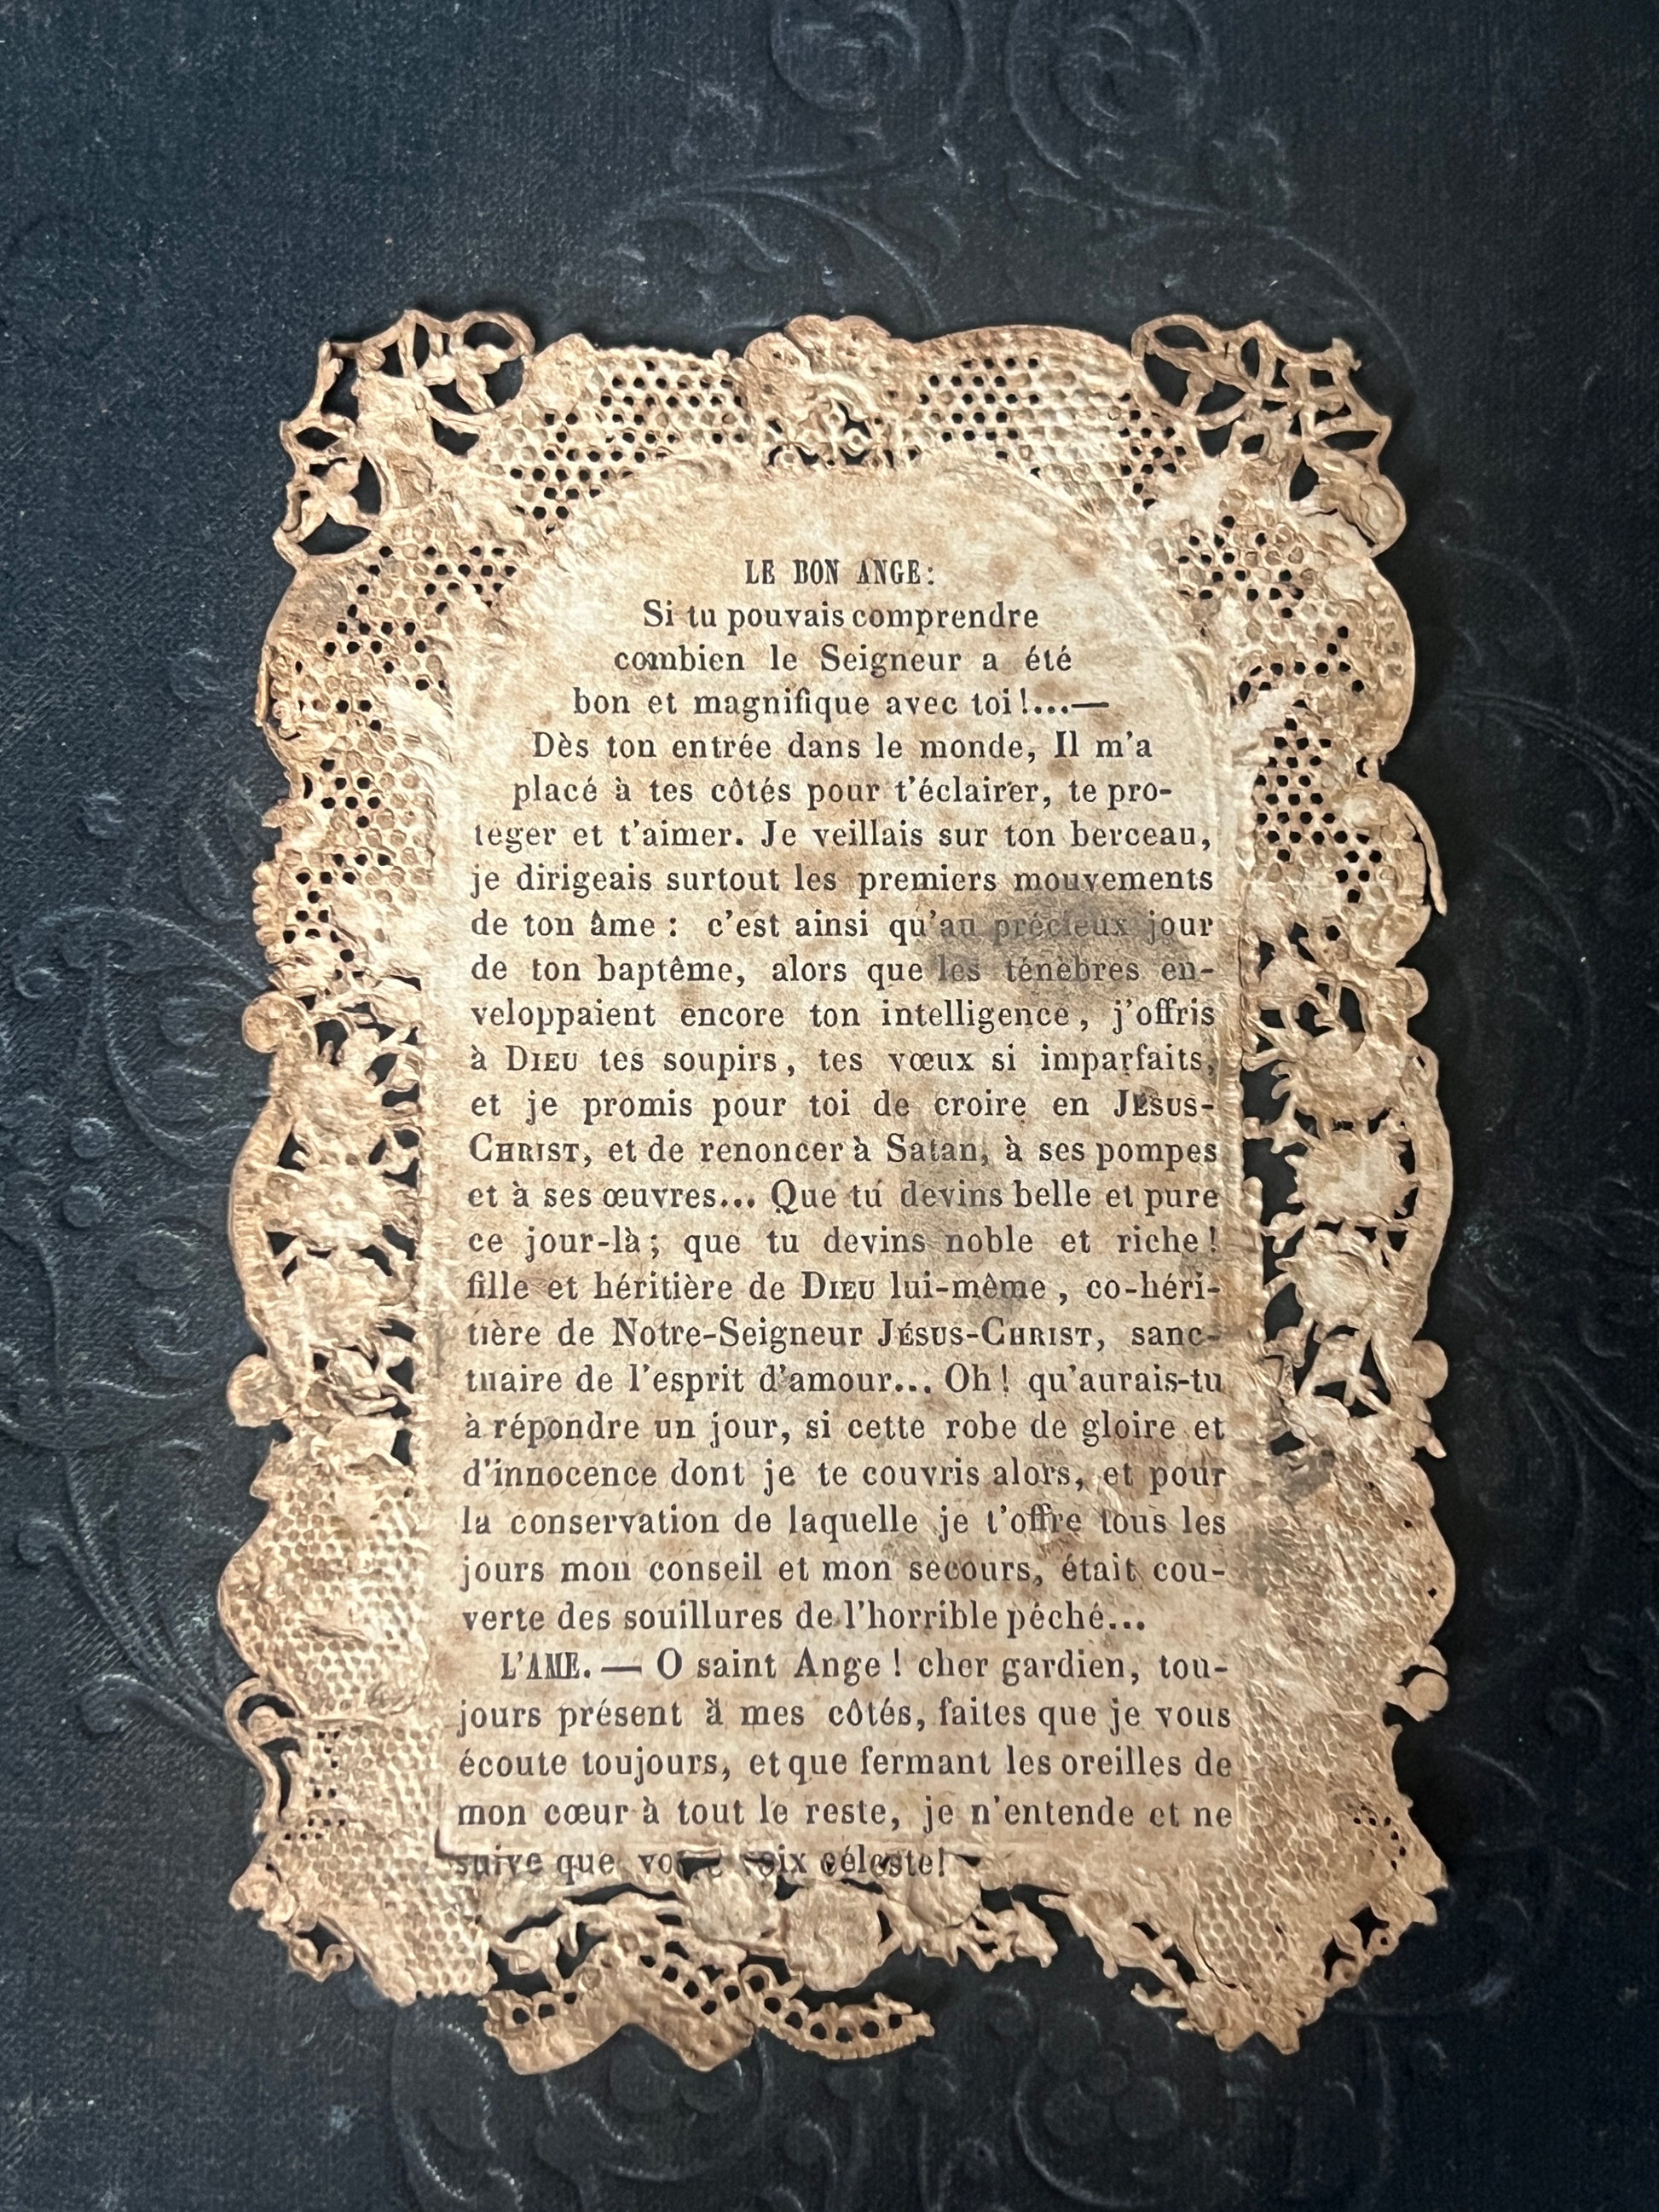 LE BON ANGE:
Si tu pouvais comprendre
combien le Seigneur a été
bon et magnifique avec toi!...—
Dès ton entrée dans le monde, Il m'a
placé à tes côtés pour t'éclairer, te pro-
teger et t'aimer. Je veillais sur ton berceau,
je dirigeais surtout les premiers mouvements
de ton âme : c'est ainsi qu'au précieux jour
de ton baptême, alors que les ténèbres en-
veloppaient encore ton intelligence, j'offris
à DIEU tes soupirs, tes vœux si imparfaits,
et je promis pour toi de croire en JÉSUS-
CHRIST, et de renoncer à Satan, à ses pompes
et à ses œuvres... Que tu devins belle et pure
ce jour-là; que tu devins noble et riche!
fille et héritière de DIEU lui-même, co-héri-
tière de Notre-Seigneur JÉSUS-CHRIST, sanc-
tuaire de l'esprit d'amour... Oh! qu'aurais-tu
à répondre un jour, si cette robe de gloire et
d'innocence dont je te couvris alors, et pour
la conservation de laquelle je t'offre tous les
jours mon conseil et mon secours, était cou-
verte des souillures de l'horrible péché...
L'AME. — O saint Ange! cher gardien, tou-
jours présent à mes côtés, faites que je vous
écoute toujours, et que fermant les oreilles de
mon cœur à tout le reste, je n'entende et ne
suive que céleste!